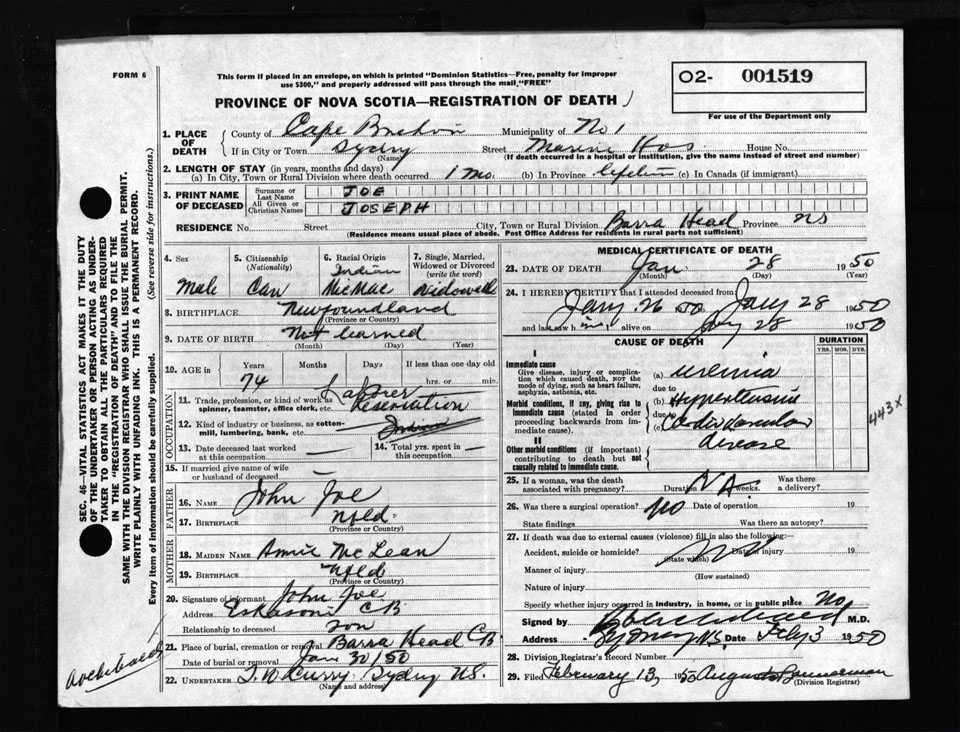 FORM 6
This form if placed in an envelope, on which is printed "Dominion Statistics—Free, penalty for improper
use $300," and properly addressed will pass through the mail "FREE"
PROVINCE OF NOVA SCOTIA—REGISTRATION OF DEATH
O2- 001519
For use of the Department only
1. PLACE OF DEATH
County of Cape Breton Municipality of No 1
If in City or Town Sydney (Name) Street Marine Hos. House No.
(If death occurred in a hospital or institution, give the name instead of street and number)
2. LENGTH OF STAY (in years, months and days)
(a) In City, Town or Rural Division where death occurred 1 mo. (b) In Province lifetime (c) In Canada (if immigrant)
3. PRINT NAME OF DECEASED
Surname or Last Name JOE
All Given or Christian Names JOSEPH
RESIDENCE No. Street City, Town or Rural Division Barra Head Province NS
(Residence means usual place of abode. Post Office Address for residents in rural parts not sufficient)
4. Sex Male
5. Citizenship (Nationality) Can
6. Racial Origin Indian MicMac
7. Single, Married, Widowed or Divorced (write the word) Widowed
8. BIRTHPLACE Newfoundland
(Province or Country)
9. DATE OF BIRTH Not learned
(Month) (Day) (Year)
10. AGE in Years Months Days If less than one day old
74 hrs. or min.
OCCUPATION
11. Trade, profession, or kind of work as spinner, teamster, office clerk, etc. Laborer
Reservation
12. Kind of industry or business, as cotton-mill, lumbering, bank, etc.
13. Date deceased last worked at this occupation —
14. Total yrs. spent in this occupation —
15. If married give name of wife or husband of deceased —
FATHER
16. NAME John Joe
17. BIRTHPLACE Nfld.
(Province or Country)
MOTHER
18. MAIDEN NAME Annie McLean
19. BIRTHPLACE Nfld
(Province or Country)
20. Signature of informant John Joe
Address Eskasoni CB
Relationship to deceased son
21. Place of burial, cremation or removal Barra Head CB
Date of burial or removal Jan 30/50
22. UNDERTAKER T. W Curry. Sydney NS.
(Name and address)
MEDICAL CERTIFICATE OF DEATH
23. DATE OF DEATH Jan. 28 1950
(Month) (Day) (Year)
24. I HEREBY CERTIFY that I attended deceased from
Jany. 26 50 to Jany 28 1950
and last saw him alive on Jany 28 1950
CAUSE OF DEATH
DURATION
YRS. MOS. DYS.
I
Immediate cause
Give disease, injury or complication which caused death, not the mode of dying, such as heart failure, asphyxia, asthenia, etc.
(a) uremia
due to
Morbid conditions, if any, giving rise to immediate cause (stated in order proceeding backwards from immediate cause).
(b) Hypertensive
due to
(c) Cardio Vascular
disease
443X
II
Other morbid conditions (if important) contributing to death but not causally related to immediate cause.
25. If a woman, was the death associated with pregnancy? Duration NA. weeks. Was there a delivery?
26. Was there a surgical operation? No Date of operation 19
State findings Was there an autopsy?
27. If death was due to external causes (violence) fill in also the following:—
Accident, suicide or homicide? Date of injury 19
(State which)
Manner of injury
(How sustained)
Nature of injury
Specify whether injury occurred in industry, in home, or in public place No
Signed by M.D.
Address Sydney N.S. Date Feby 3 1950
28. Division Registrar's Record Number
29. Filed February 13, 1950 Bannerman
(Division Registrar)
SEC. 46—VITAL STATISTICS ACT MAKES IT THE DUTY
OF THE UNDERTAKER OR PERSON ACTING AS UNDER-
TAKER TO OBTAIN ALL THE PARTICULARS REQUIRED
IN THE "REGISTRATION OF DEATH" AND TO FILE THE
SAME WITH THE DIVISION REGISTRAR WHO SHALL ISSUE THE BURIAL PERMIT.
WRITE PLAINLY WITH UNFADING INK. THIS IS A PERMANENT RECORD.
Every item of information should be carefully supplied. (See reverse side for instructions.)